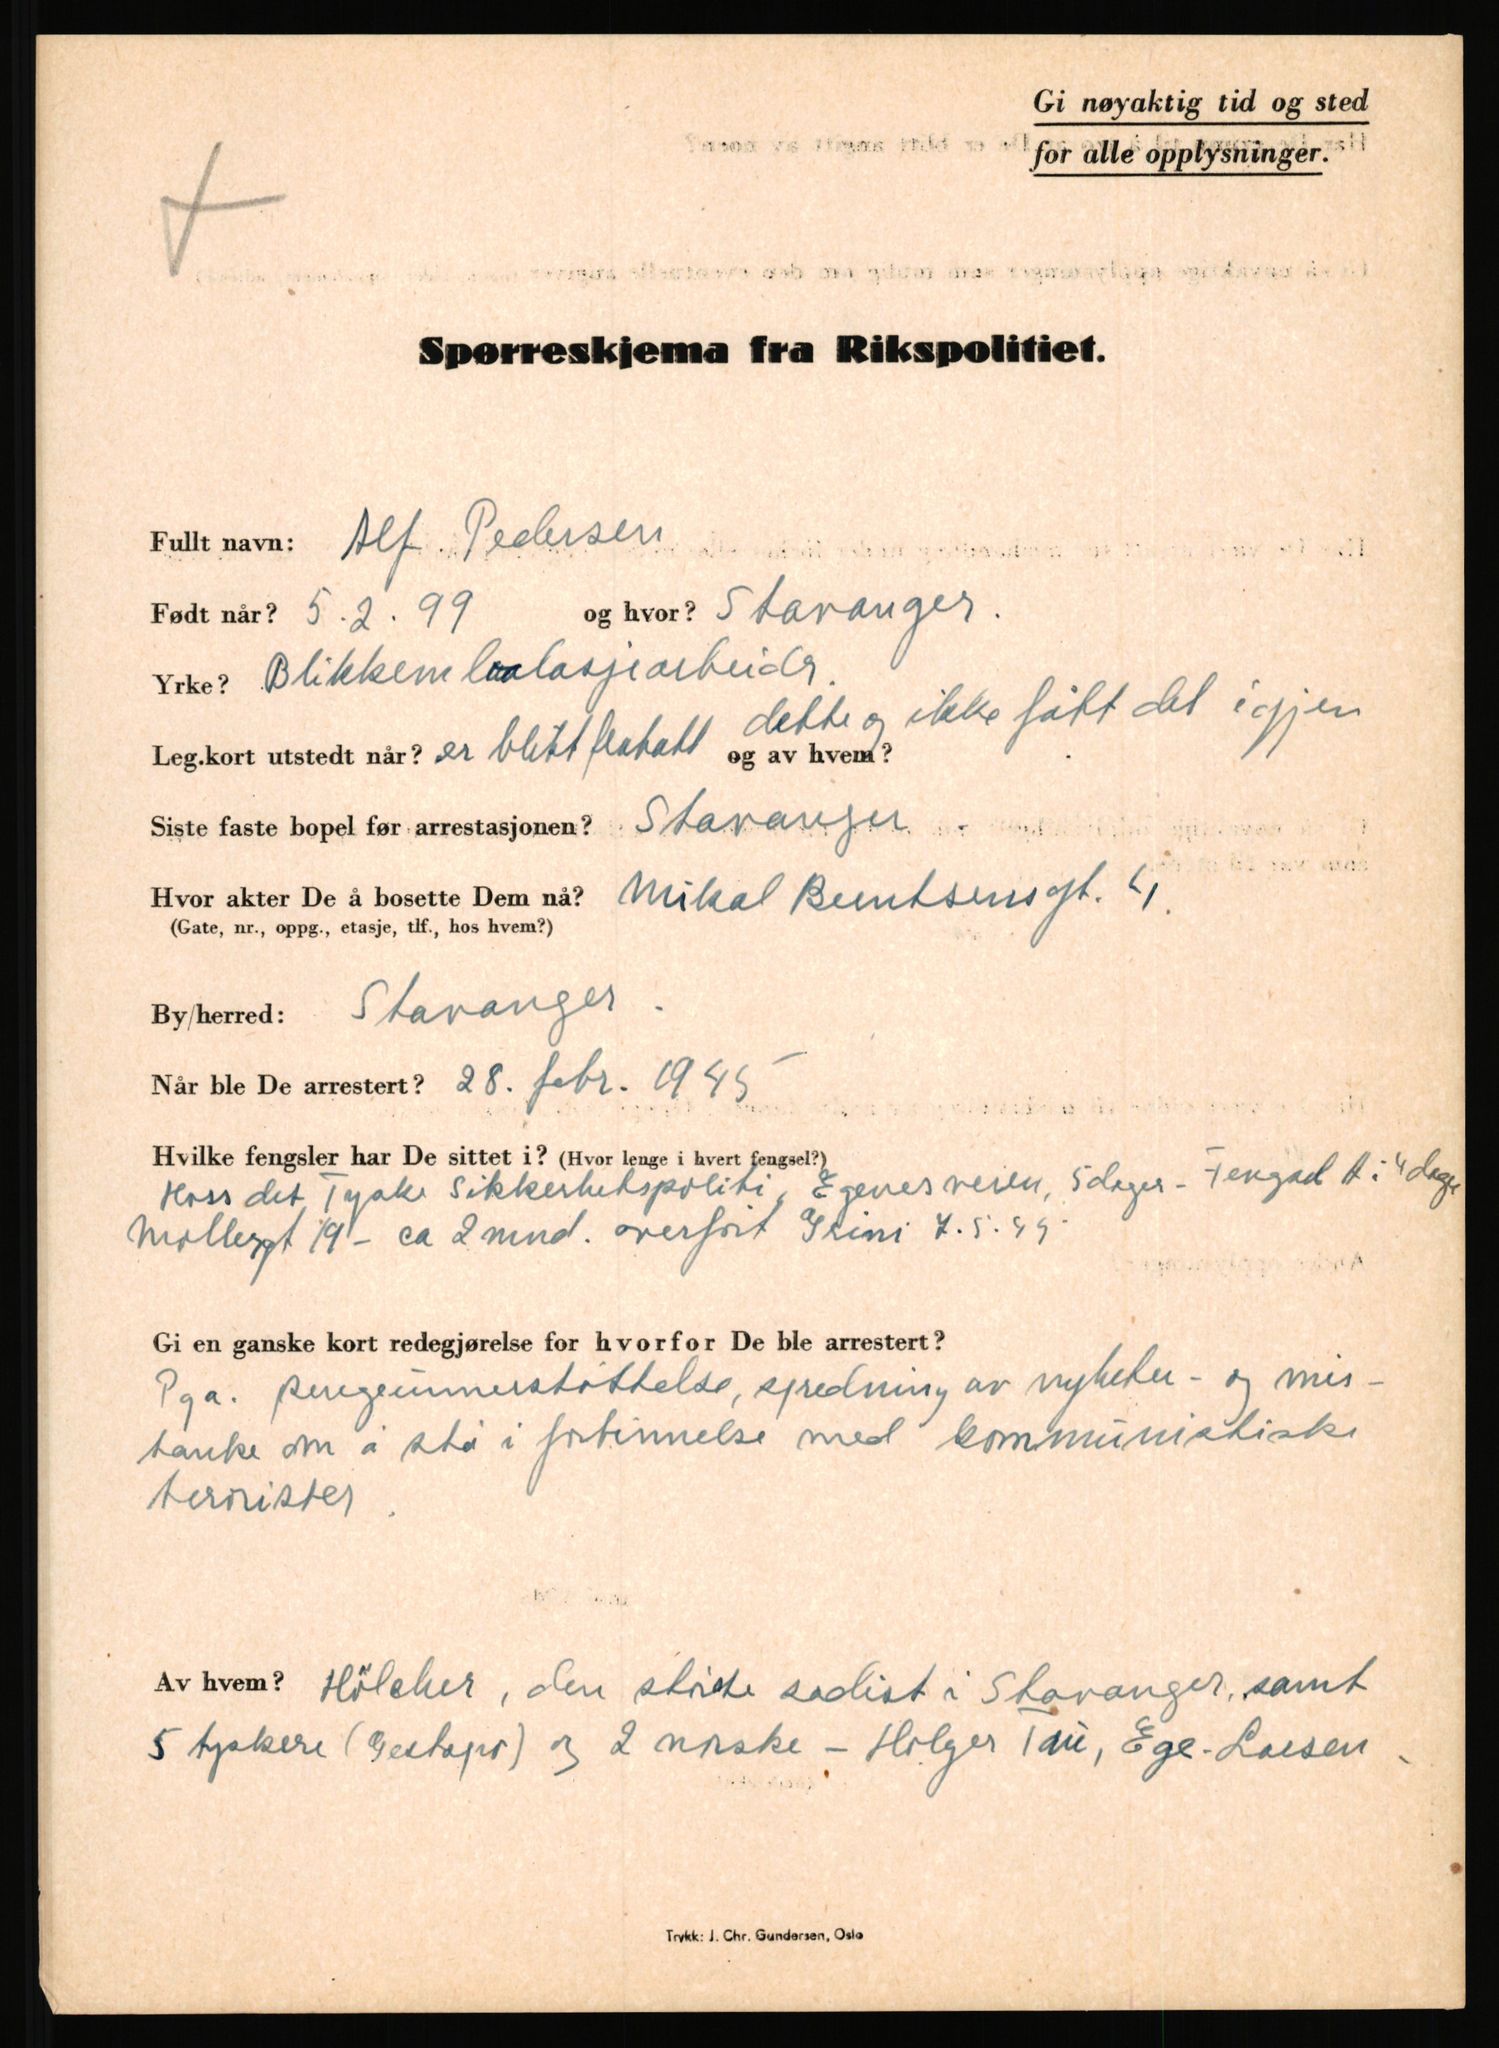 Gi nøyaktig tid og sted
for alle opplysninger.
Spørreskjema fra Rikspolitiet.
Fullt navn: Alf Pedersen
Født når? 5.2.99 og hvor? Stavanger.
Yrke? Blikkemballasjearbeidr.
dette og ikke fått det igjen
Leg.kort utstedt når? er blitt fratatt og av hvem?
Siste faste bopel før arrestasjonen? Stavanger
Hvor akter De å bosette Dem nå? Mikal Berntsensgt. 4.
(Gate, nr., oppg., etasje, tlf., hos hvem?)
By/herred: Stavanger.
Når ble De arrestert? 28. febr. 1945
Hvilke fengsler har De sittet i? (Hvor lenge i hvert fengsel?)
Hoss det Tyske Sikkerhetspoliti, Egenesveien, 5 dager - Fengsel A: 4 dager
Møllergt 19 - ca 2 mnd. overført Grini 7.5.45
Gi en ganske kort redegjørelse for hvorfor De ble arrestert?
Pga. pengeunnerstøttelse, spredning av nyheter - og mis-
tanke om å stå i forbinnelse med kommunistiske
terorister.
Av hvem? Hölcher, den störste sadist i Stavanger, samt
5 tyskere (Gestapo) og 2 norske - Holger Tou, Ege-Larsen
Trykk: J. Chr. Gundersen, Oslo